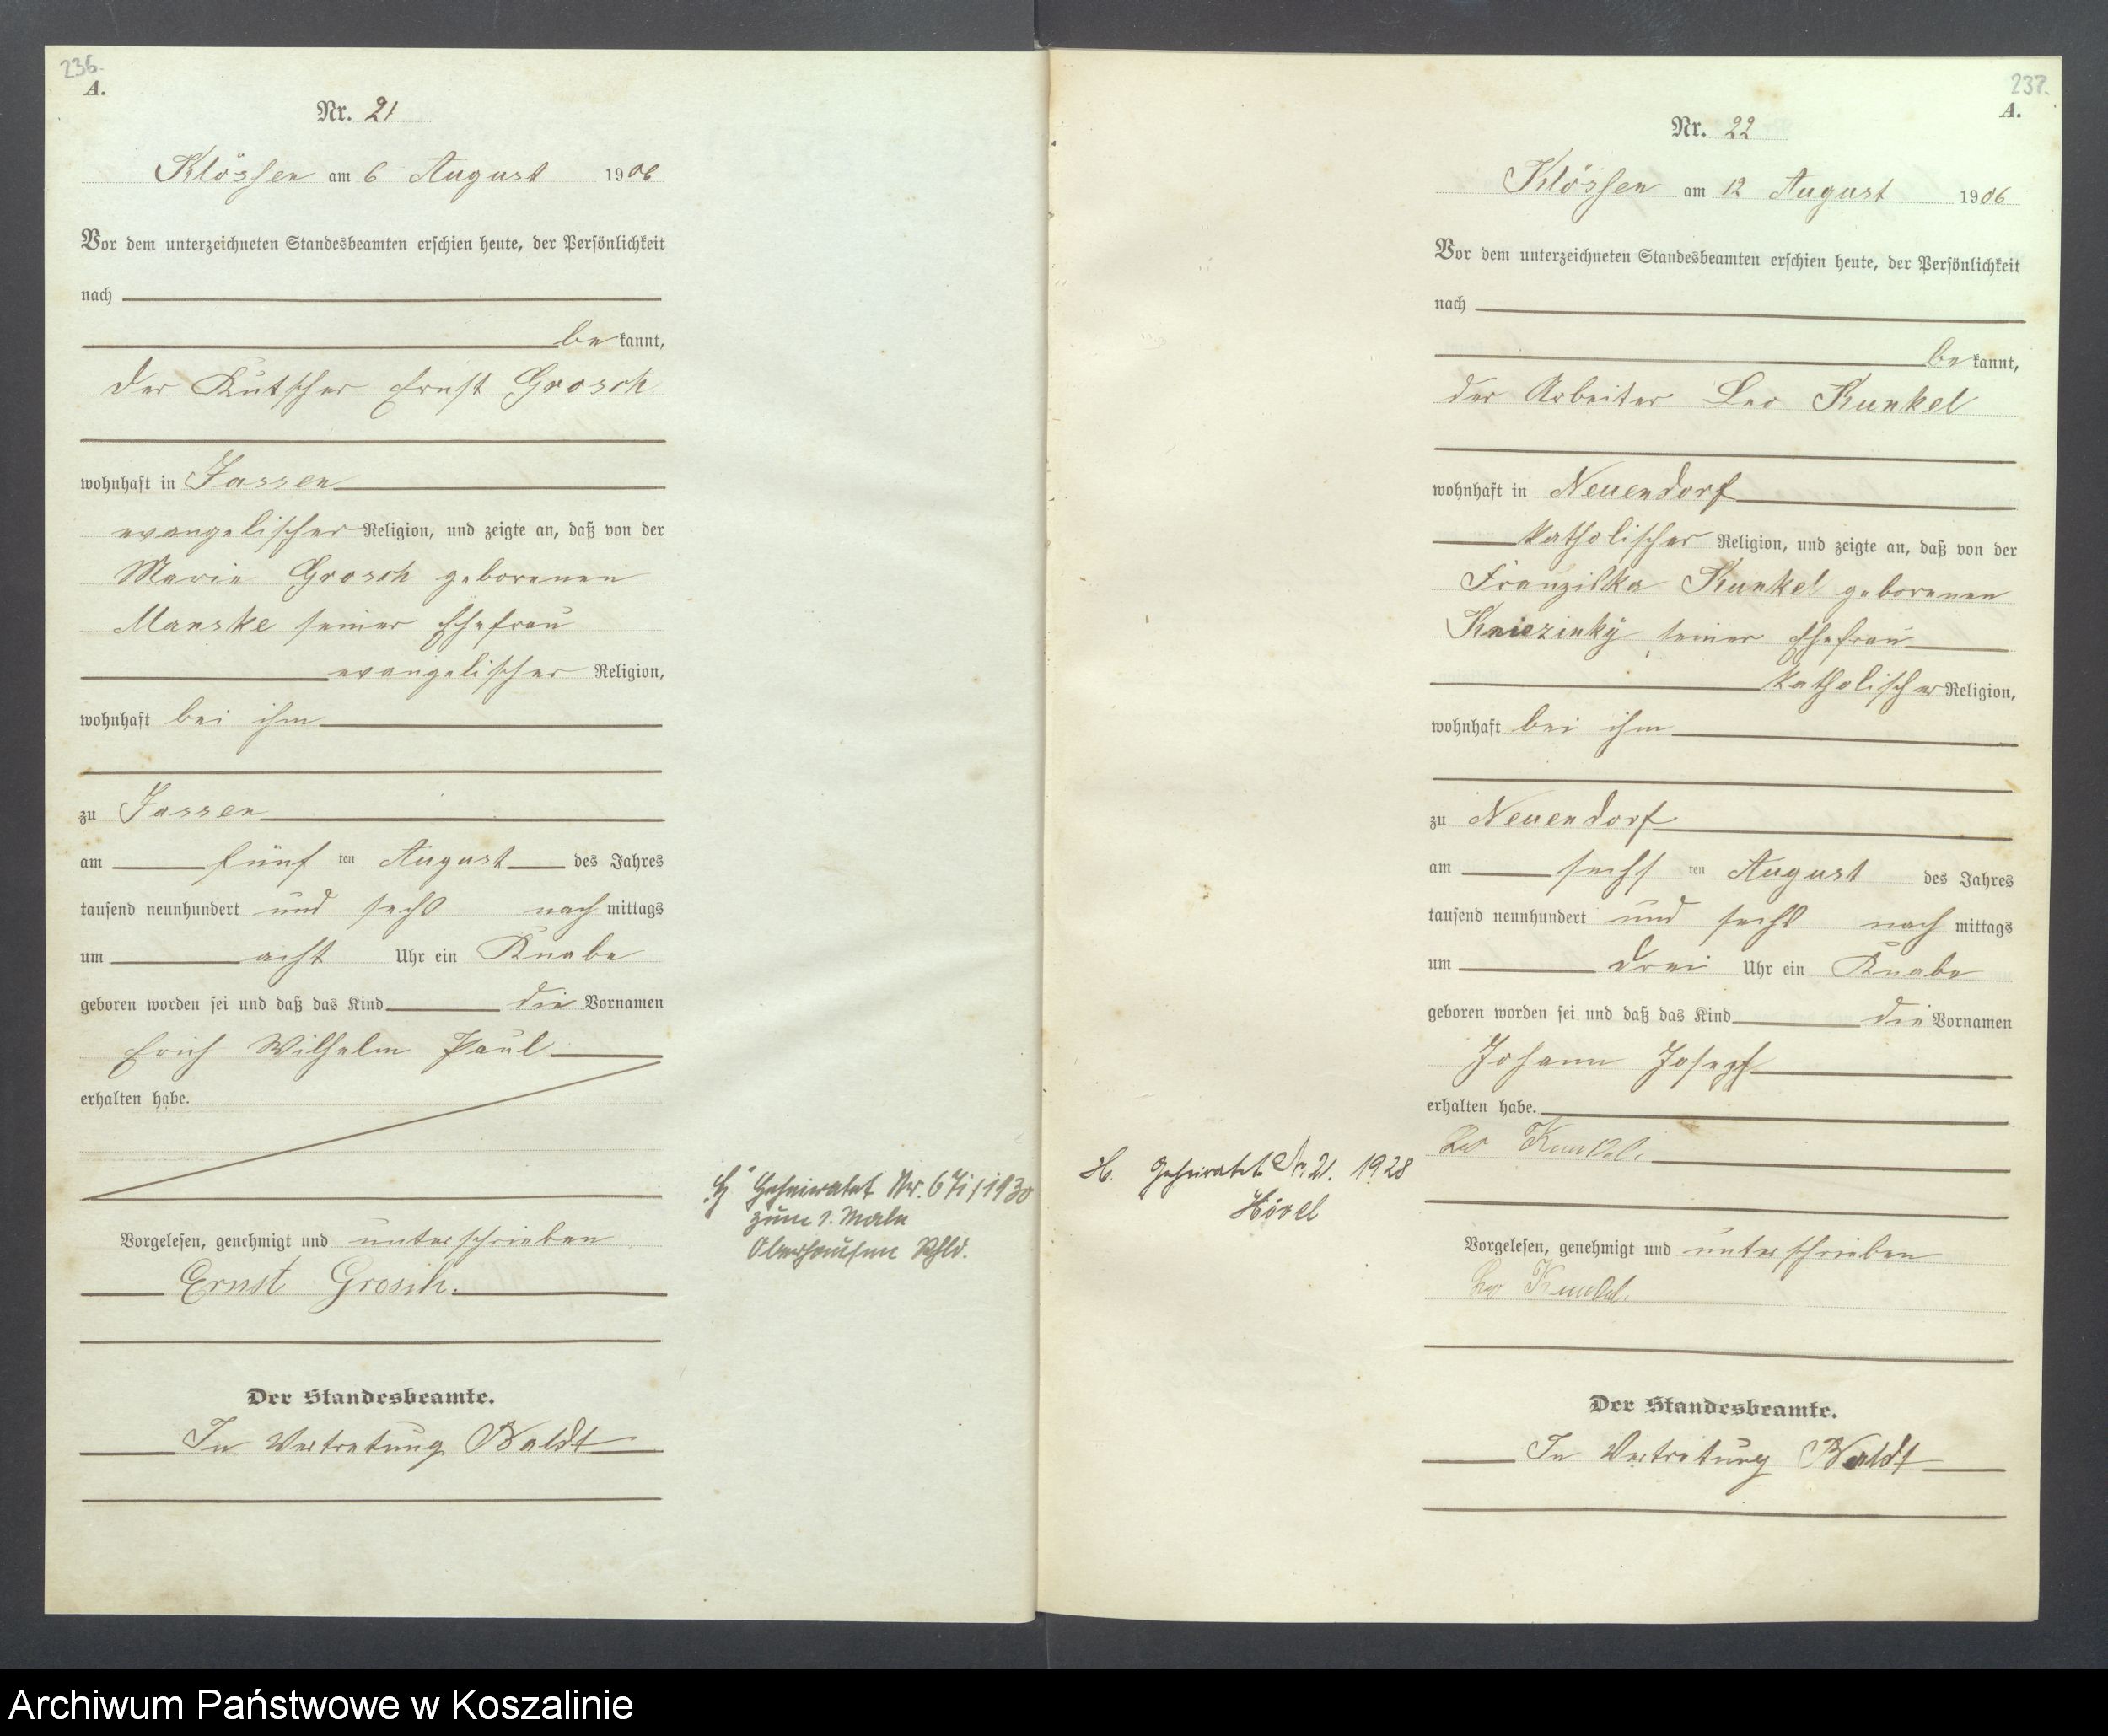 236.
A.
Nr. 21
Klössen am 6 August 1906
Vor dem unterzeichneten Standesbeamten erschien heute, der Persönlichkeit
nach
be kannt,
der Kutscher Ernst Grosch
wohnhaft in Jassen
evangelischer Religion, und zeigte an, daß von der
Marie Grosch geborenen
Manske seiner Ehefrau
evangelischer Religion,
wohnhaft bei ihm
zu Jassen
am fünf ten August des Jahres
tausend neunhundert und sechs nach mittags
um acht Uhr ein Knabe
geboren worden sei und daß das Kind die Vornamen
Erich Wilhelm Paul
erhalten habe.
Vorgelesen, genehmigt und unterschrieben
Ernst Grosch.
Der Standesbeamte.
In Vertretung Baldt
Geheiratet Nr. 1930
zum 1. Male
Oberhausen Rhld.
237.
A.
Nr. 22
Klössen am 12 August 1906
Vor dem unterzeichneten Standesbeamten erschien heute, der Persönlichkeit
nach
be kannt,
der Arbeiter Leo Kunkel
wohnhaft in Neuendorf
katholischer Religion, und zeigte an, daß von der
Franziska Kunkel geborenen
Kniezinky seiner Ehefrau
katholischer Religion,
wohnhaft bei ihm
zu Neuendorf
am sechs ten August des Jahres
tausend neunhundert und sechs nach mittags
um drei Uhr ein Knabe
geboren worden sei und daß das Kind die Vornamen
Johann Josepf
erhalten habe.
Leo Kunkel.
H. Geheiratet Nr. 21. 1928
Hövel
Vorgelesen, genehmigt und unterschrieben
Leo Kunkel.
Der Standesbeamte.
In Vertretung Baldt
Archiwum Państwowe w Koszalinie